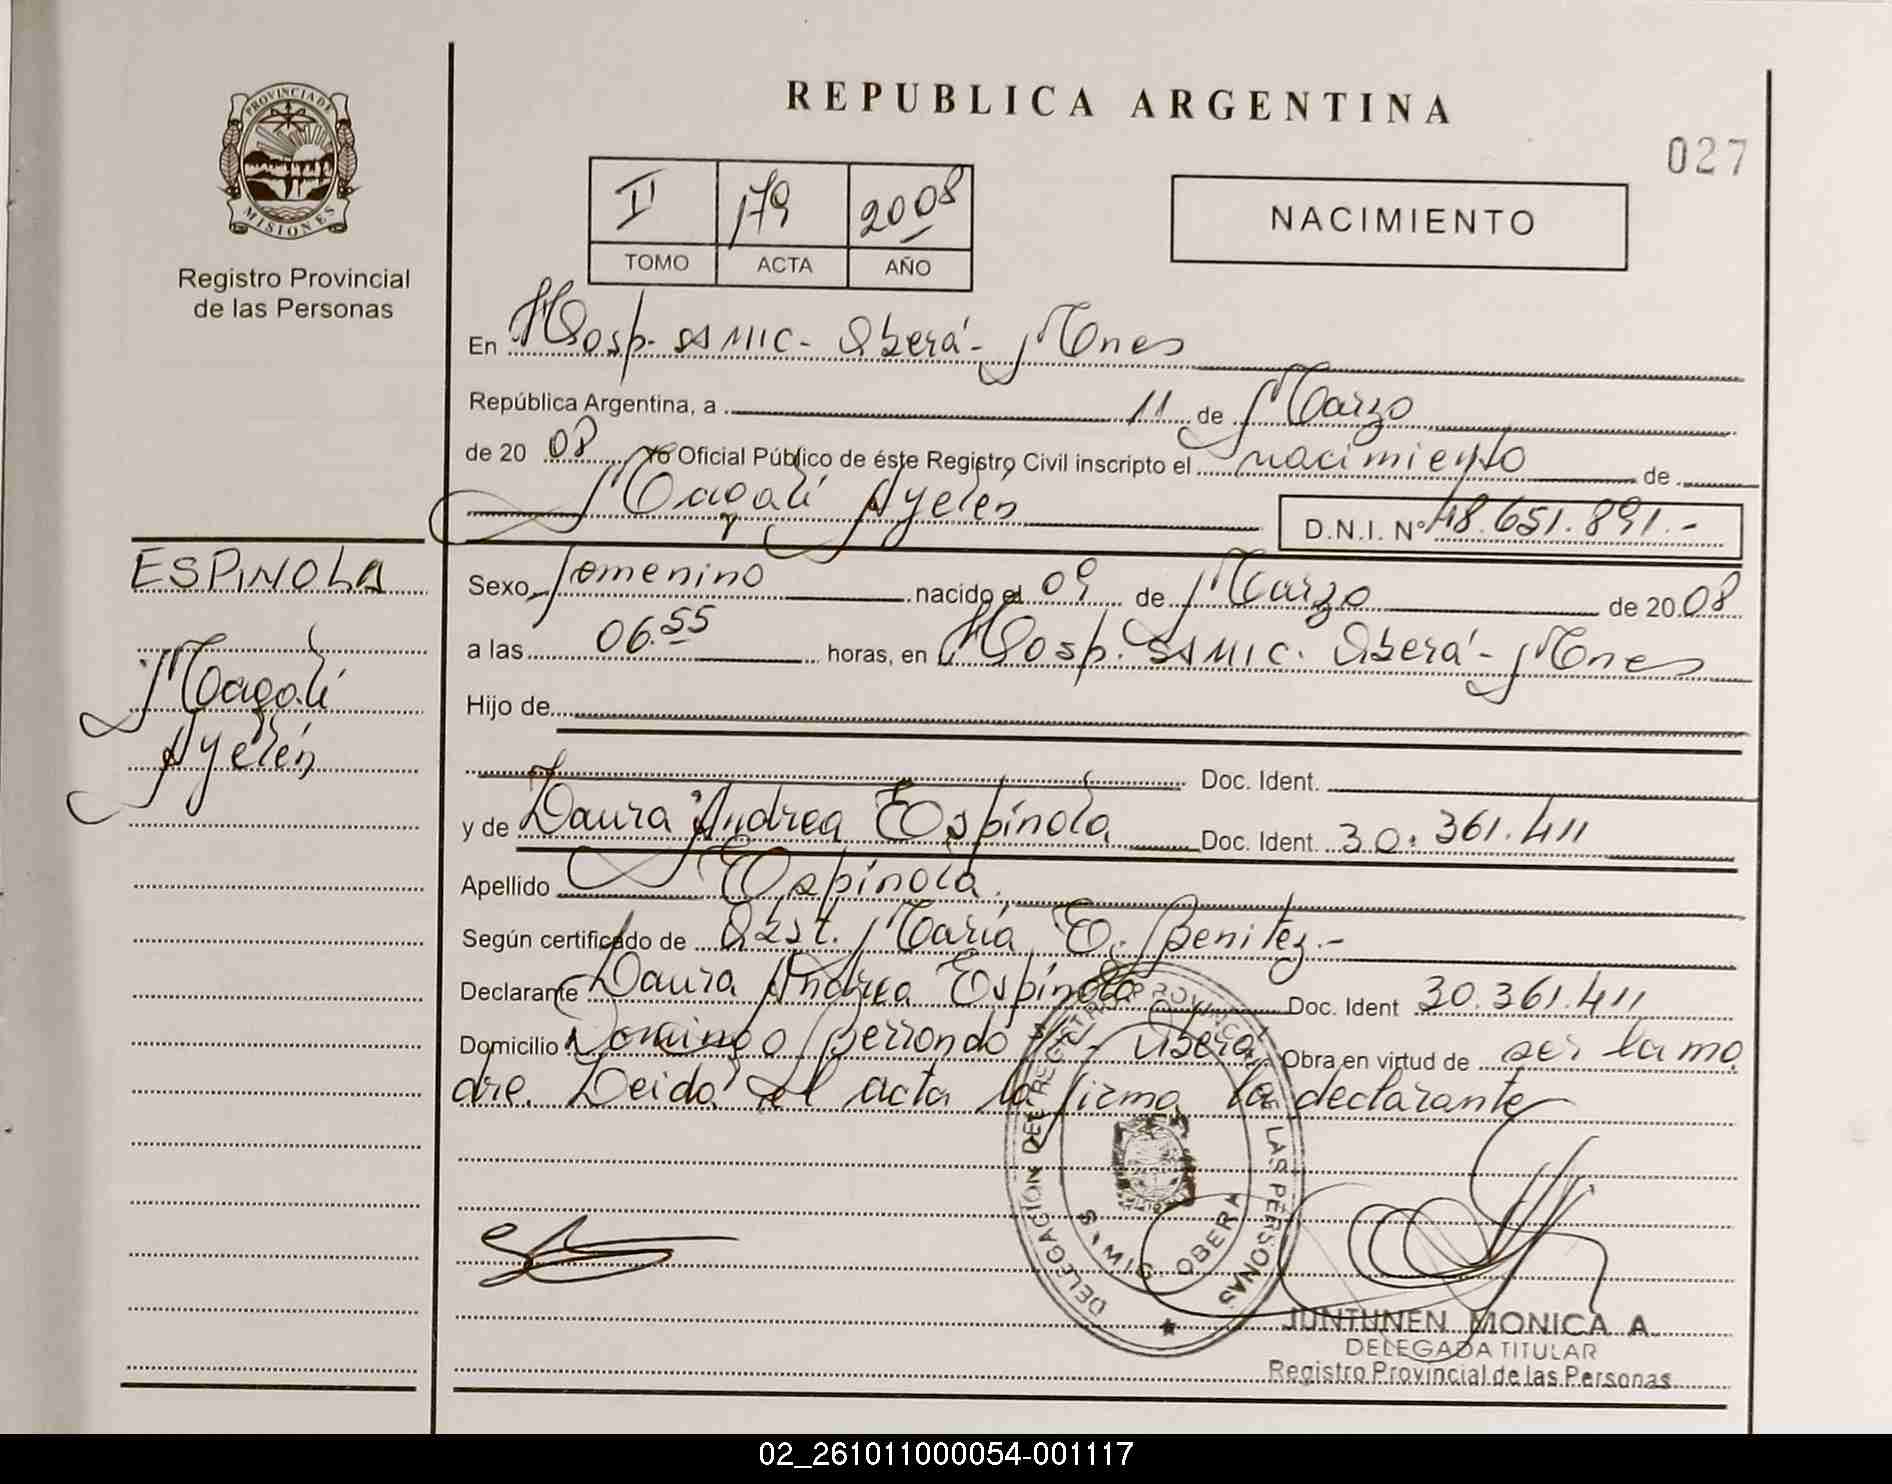 REPUBLICA ARGENTINA
027
PROVINCIA DE
MISIONES
Registro Provincial
de las Personas
II 179 2008
TOMO ACTA AÑO
NACIMIENTO
En Hosp. SAMIC - Oberá - Mnes
República Argentina, a 11 de Marzo
de 2008 Yo Oficial Público de éste Registro Civil inscripto el nacimiento de
Magalí Ayelén D.N.I. Nº 48.651.891.-
ESPINOLA
Magalí
Ayelén
Sexo femenino nacido el 09 de Marzo de 2008
a las 06.55 horas, en Hosp. SAMIC. Oberá - Mnes
Hijo de
Doc. Ident.
y de Laura Andrea Espínola Doc. Ident. 30.361.411
Apellido Espínola.
Según certificado de Obst. María E. Benitez.-
Declarante Laura Andrea Espínola Doc. Ident 30.361.411
Domicilio Domingo Berrondo Oberá Obra en virtud de ser la ma
dre. Leida el acta la firma la declarante
DELEGACIÓN DEL REGISTRO PROVINCIAL DE LAS PERSONAS
OBERA
JUNTUNEN MONICA A.
DELEGADA TITULAR
Registro Provincial de las Personas
02_261011000054-001117